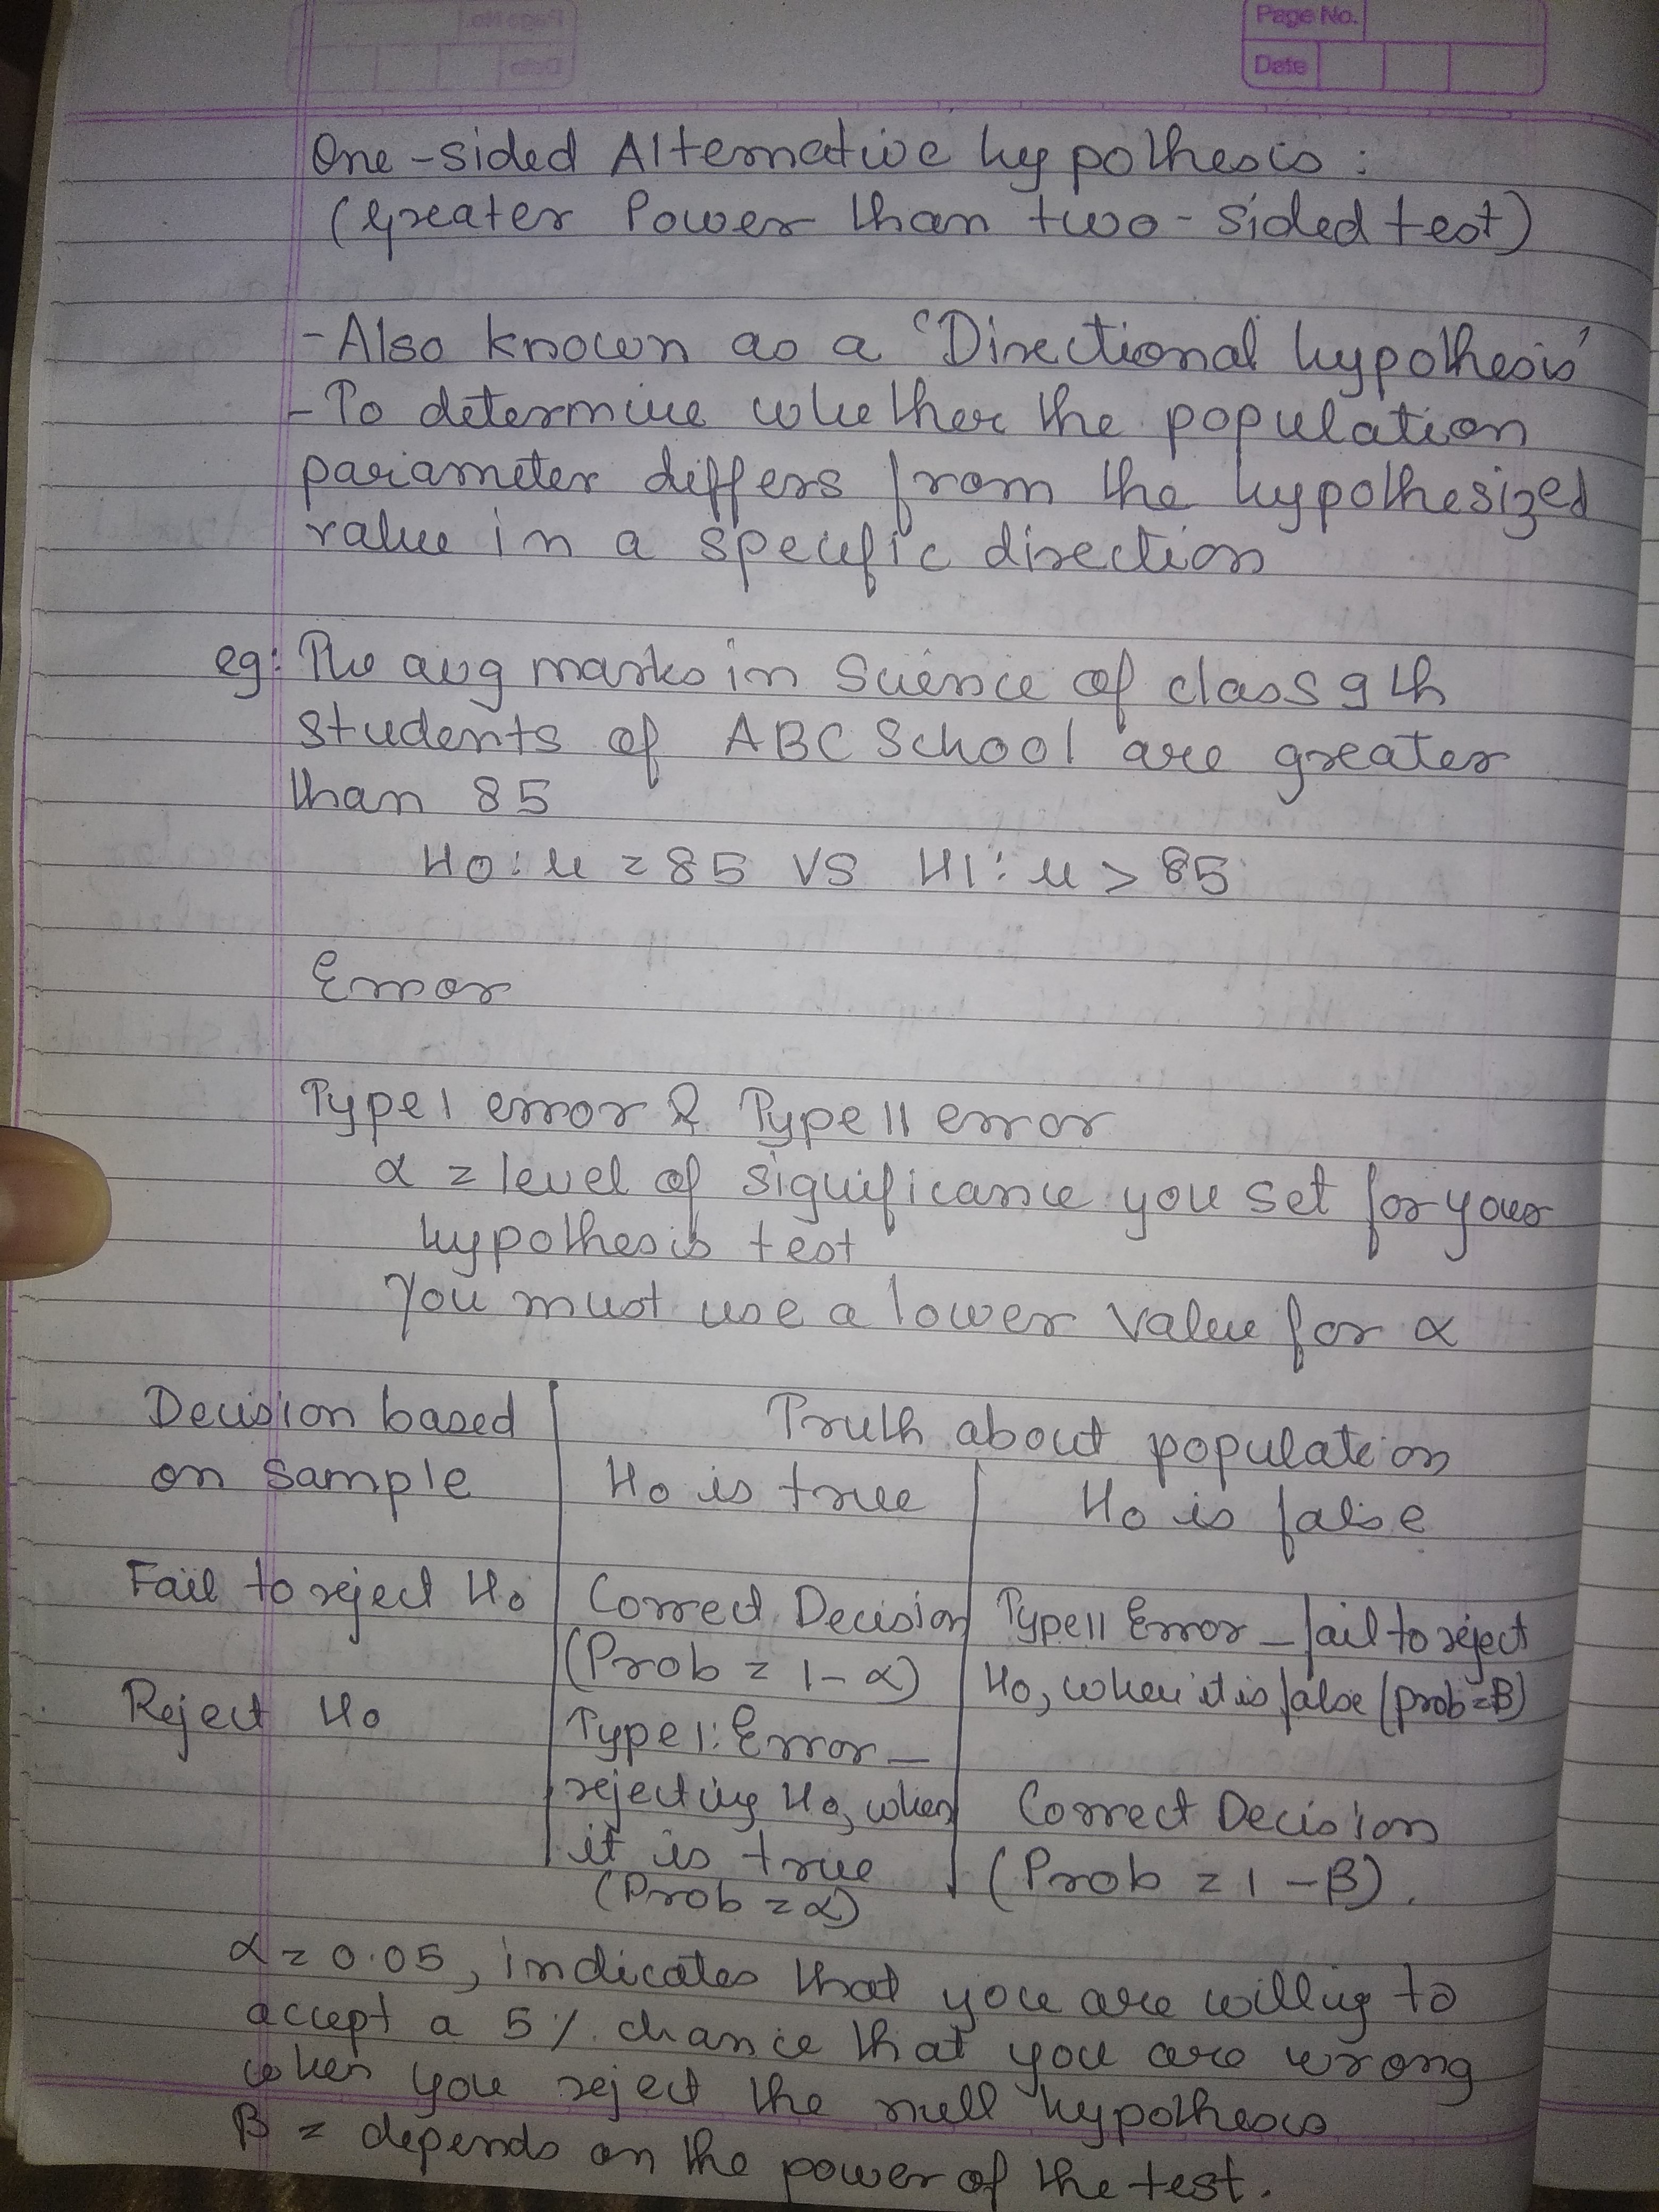 Page No.
Date
One-sided Alternative hypothesis :
(Greater Power than two-sided test)
- Also known as a 'Directional hypothesis'
- To determine whether the population
parameter differs from the hypothesized
value in a specific direction
eg: The avg marks in Science of class 9th
students of ABC School are greater
than 85
H0 : μ = 85 VS H1 : μ > 85
Error
Type I error & Type II error
α = level of significance you set for your
hypothesis test
You must use a lower value for α
Decision based | Truth about population
on sample | H0 is true | H0 is false
Fail to reject H0 | Correct Decision | Type II Error - fail to reject
(Prob = 1-α) | H0, when it is false (prob=β)
Reject H0 | Type I: Error -
rejecting H0, when | Correct Decision
it is true | (Prob = 1-β).
(Prob = α)
α = 0.05, indicates that you are willing to
accept a 5% chance that you are wrong
when you reject the null hypothesis
β = depends on the power of the test.